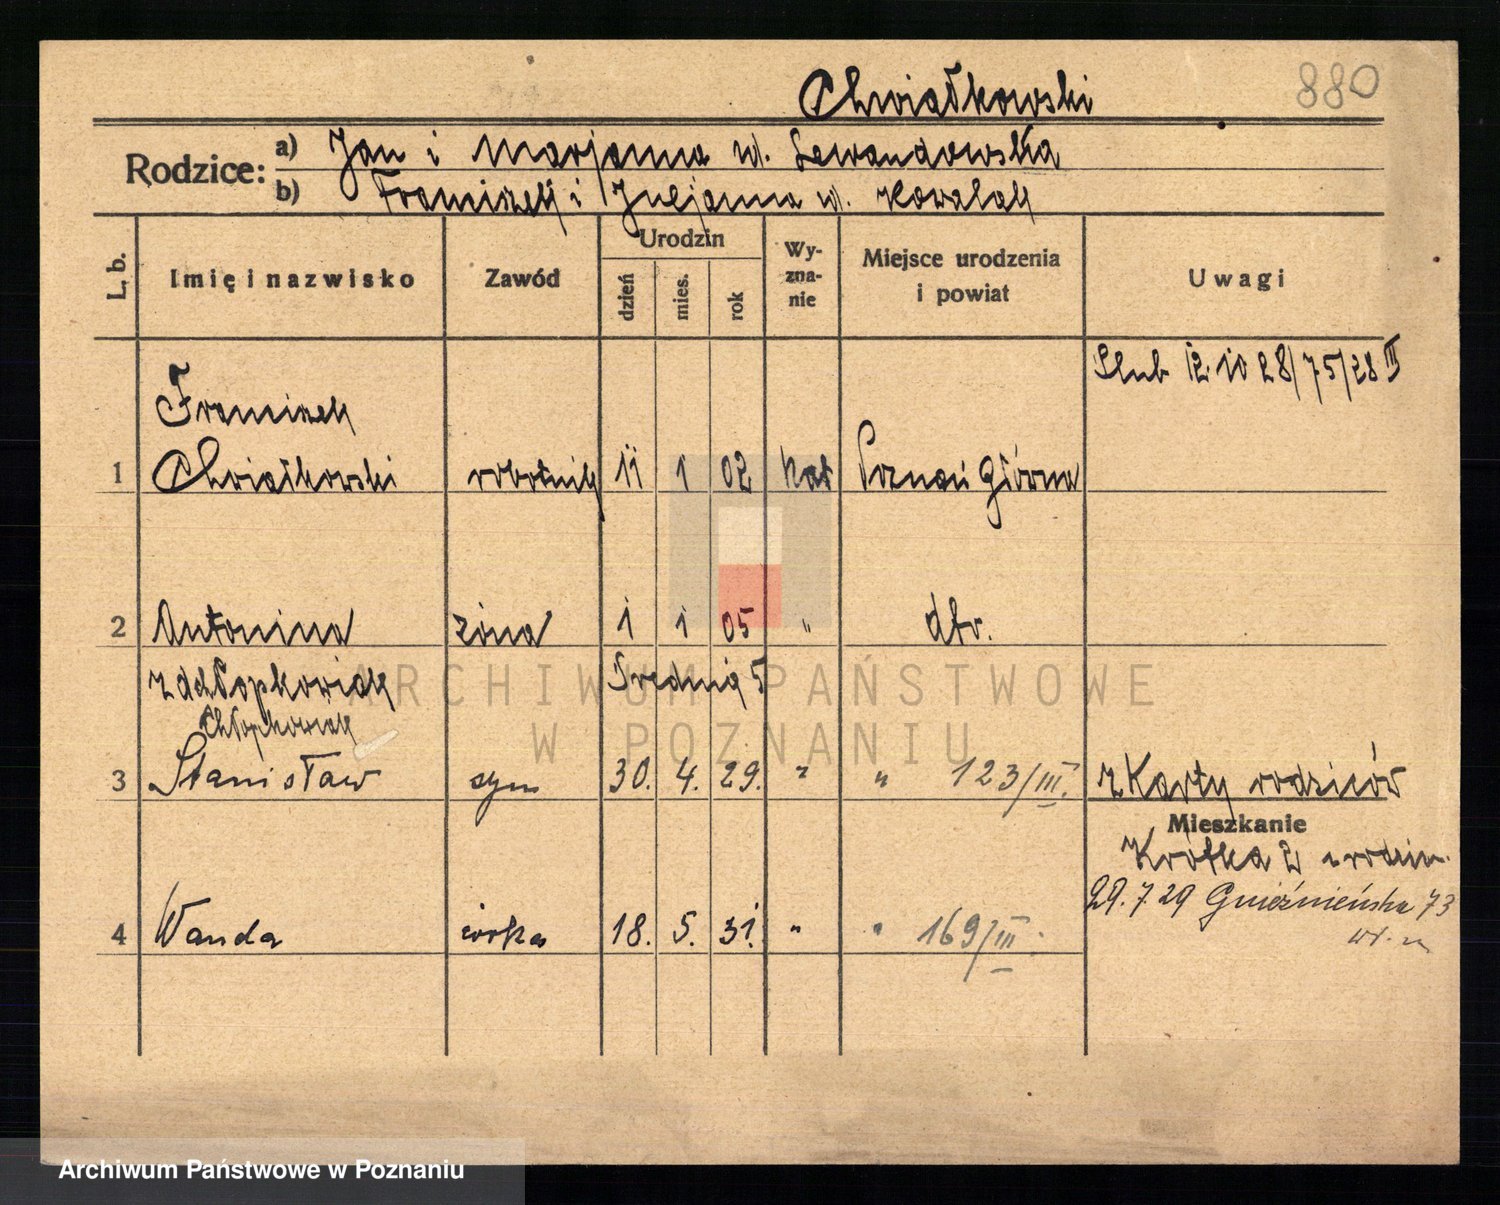 Chwiałkowski 880
Rodzice: a) Jan i Marjanna zd. Lewandowska
b) Franciszek i Juljanna zd. Kowalak
L. b. Imię i nazwisko Zawód Urodzin dzień mies. rok Wy-zna-nie Miejsce urodzenia i powiat Uwagi
Ślub 12 10 28/75/28 III
Franciszek
1 Chwiałkowski robotnik 11 1 02 kat Poznań Główna
2 Antonina żona 1 1 05 " dto.
z d Chłopkowiak Średnia 5
Chłopkowiak
3 Stanisław syn 30. 4. 29. " " 123/III. z Karty rodziców
Mieszkanie
Krótka 2 u rodzic.
29.7.29 Gnieźnieńska 73
4 Wanda córka 18. 5. 31. " " 169/III.
ARCHIWUM PAŃSTWOWE
W POZNANIU
Archiwum Państwowe w Poznaniu